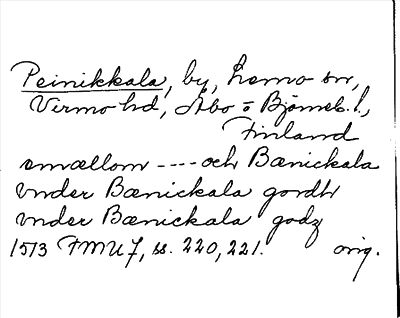 Peinikkala, by, Lemo sn,
Virmo hd, Åbo o Björneb. l,
Finland
emællom ---- och Bænickala
vnder Bænickala gordh
vnder Bænickala godz
1513 FMU 7, ss. 220, 221. orig.